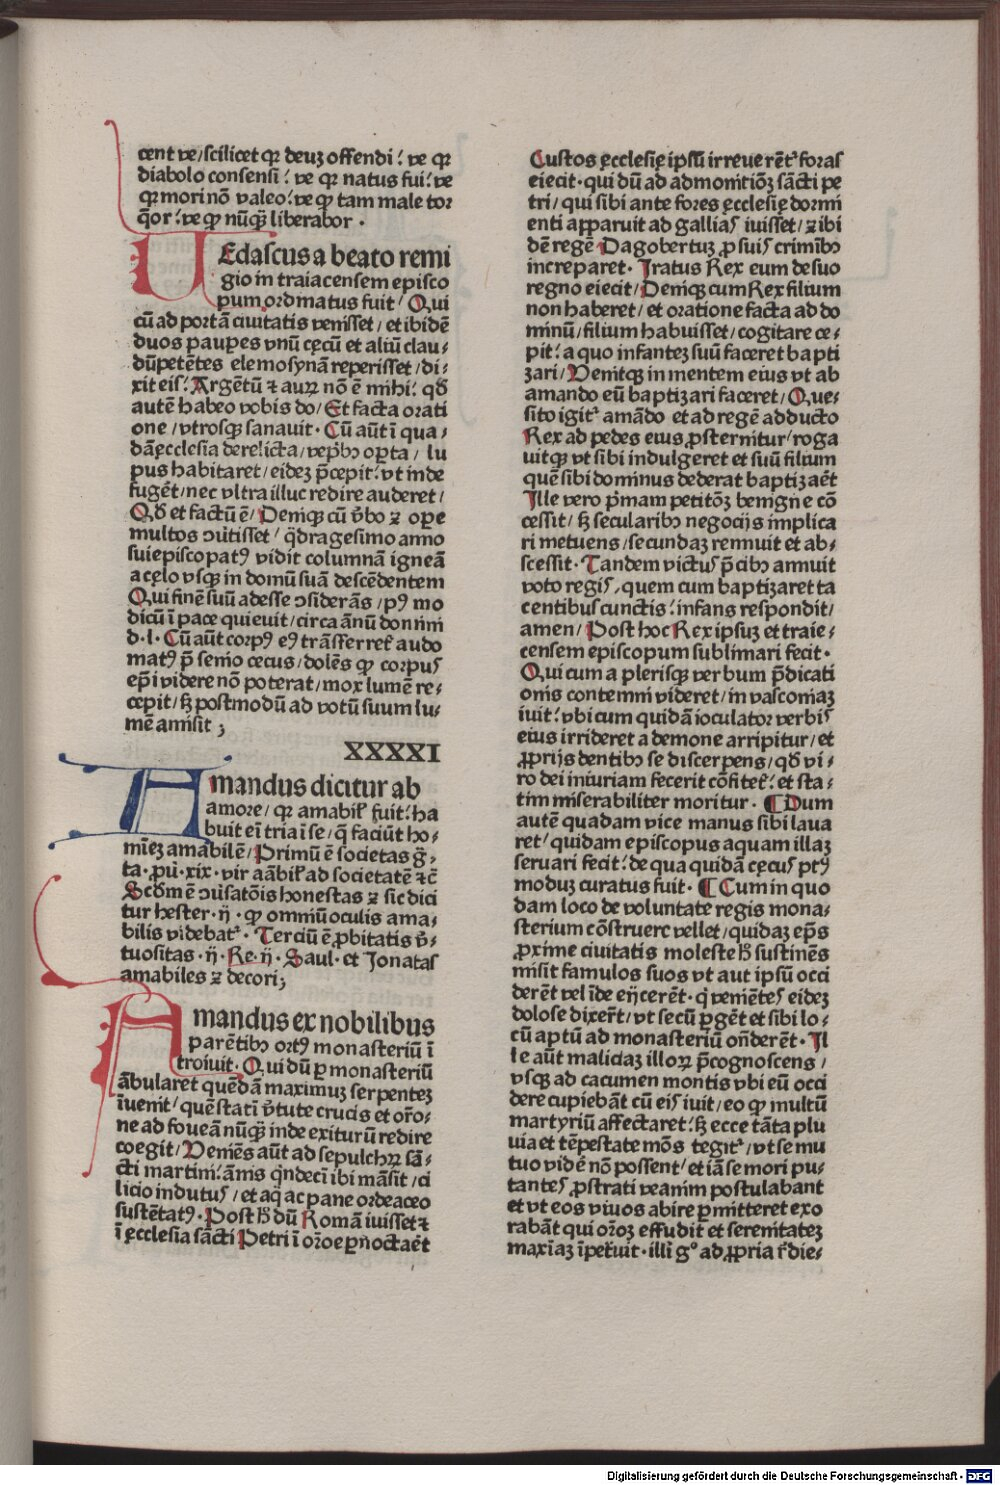 cent ve/scilicet qꝛ deuʒ offendi: ve qꝛ
diabolo consensi: ve qꝛ natus fui: ve
qꝛ mori nō valeo: ve ꝙ tam male tor
q̄or: ve ꝙ nūqȝ liberabor ·
UEdascus a beato remi
gio in traiacensem episco
pum ordinatus fuit/ Qui
cū ad portā ciuitatis venisset/ et ibidē
duos pauꝑes vnū cęcū et aliū clau⸗
dū petētes elemosynā reperisset/di⸗
xit eis: Argētū ⁊ auꝝ nō ē mihi: qđ
autē habeo vobis do/ Et facta orati
one/vtrosqȝ sanauit· Cū aūt ī qua⸗
dā ęcclesia derelicta/veprib9 oꝑta/ lu
pus habitaret/eideʒ p̄cepit: vt inde
fugēt/nec vltra illuc redire auderet/
Qđ et factū ē/ Deniqȝ cū v̄bo ⁊ oꝑe
multos ꝯūtisset/ q̄dragesimo anno
sui episcopat9 vidit columnā igneā
a cęlo vsqȝ in domū suā descēdentem
Qui finē suū adesse ꝯsiderās/p9 mo
dicū ī pace quieuit/circa ānū domini
d·l· Cū aūt corp9 e9 trāsferret̄ audo
mat9 p̄ senio cecus/dolēs ꝙ corpus
ep̄i videre nō poterat/mox lumē re⸗
cepit/sʒ postmodū ad votū suum lu⸗
mē amisit ;
XXXXI
AMandus dicitur ab
amore/ qꝛ amabil̄ fuit: ha
buit ei̅ tria ī se/ q̄ faciūt ho⸗
mīeʒ amabilē/ Primū ē societas g̅⸗
ta· pū·xix·vir aābil̄ ad societatē ⁊c̄
Scd̄m ē ꝯūsatōis honestas ⁊ sic dici
tur hester·ij· ꝙ omniū oculis ama⸗
bilis videbat᷑· Terciū ē ꝓbitatis v̄⸗
tuositas·ij·Re·ij·Saul·et Jonatas
amabiles ⁊ decori;
AMandus ex nobilibus
parētib9 ort9 monasteriū ī
troiuit· Qui dū ꝑ monasteriū
ābularet quēdā maximuʒ serpenteʒ
īuenit/ quē statī v̄tute crucis et or̄o⸗
ne ad foueā nūqȝ inde exiturū redire
coegit/ Veniēs aūt ad sepulchꝝ sā⸗
cti martini: ānis q̄ndecī ibi māsit/ci
licio indutus/et aq̄ ac pane ordeaceo
sustētat9· Post h̄ dū Romā iuisset ⁊
ī ęcclesia sācti Petri ī or̄oe ꝑnoctaēt
Custos ęcclesię ipsū irreuerēt᷑ foras
eiecit· qui dū ad admonitiōʒ sācti pe
tri/ qui sibi ante fores ęcclesię dormi
enti apparuit ad gallias iuisset/ ⁊ ibi
dē regē Dagobertuʒ ꝓ suis crimīb9
increparet· Iratus Rex eum de suo
regno eiecit/ Deniqȝ cum Rex filium
non haberet/ et oratione facta ad do
minū/filium habuisset/cogitare ce⸗
pit: a quo infanteʒ suū faceret bapti
zari/ Venitqȝ in mentem eius vt ab
amando eū baptizari faceret/ Que⸗
sito igit᷑ amādo et ad regē adducto
Rex ad pedes eius ꝓsternitur/roga
uitqȝ vt sibi indulgeret et suū filium
quē sibi dominus dederat baptizaēt
Ille vero pʳmam petitōʒ benigne cō
cessit/ sʒ secularib9 negocijs implica
ri metuens/secundaʒ rennuit et ab⸗
scessit· Tandem victus p̄cib9 annuit
voto regis/quem cum baptizaret ta
centibus cunctis: infans respondit/
amen/ Post hoc Rex ipsuʒ et traie⸗
censem episcopum sublimari fecit·
Qui cum a plerisqȝ verbum p̄dicati
onis contemni videret/in vasconiaʒ
iuit: vbi cum quidā ioculator verbis
eius irrideret a demone arripitur/et
ꝓprijs dentib9 se discerpens/qđ vi⸗
ro dei iniuriam fecerit cōfitet᷑: et sta⸗
tim miserabiliter moritur· ¶ Dum
autē quadam vice manus sibi laua
ret/quidam episcopus aquam illaʒ
seruari fecit: de qua quidā cęcus pt9
moduʒ curatus fuit· ¶ Cum in quo
dam loco de voluntate regis mona⸗
sterium cōstruere vellet/quidaʒ ep̄s
ꝓxime ciuitatis moleste h̄ sustinēs
misit famulos suos vt aut ipsū occi
derēt vel īde eijcerēt· q̇ veniētes eideʒ
dolose dixer̄t/vt secū ꝑgēt et sibi lo⸗
cū aptū ad monasteriū on̄derēt· Il
le aūt maliciaʒ illoꝝ p̄cognoscens/
vsqȝ ad cacumen montis vbi eū occi
dere cupiebāt cū eis iuit/eo ꝙ multū
martyriū affectaret: sʒ ecce tāta plu
uia et tēpestate mōs tegit᷑/vt se mu
tuo vidē nō possent/et iā se mori pu⸗
tantes ꝓstrati veniam postulabant
et vt eos viuos abire ꝑmitteret exo
rabāt qui or̄oʒ effudit et serenitateʒ
maxīaʒ īpet̄uit·illi gͦ ad ꝓpria r̄die⸗
Digitalisierung gefördert durch die Deutsche Forschungsgemeinschaft - DFG